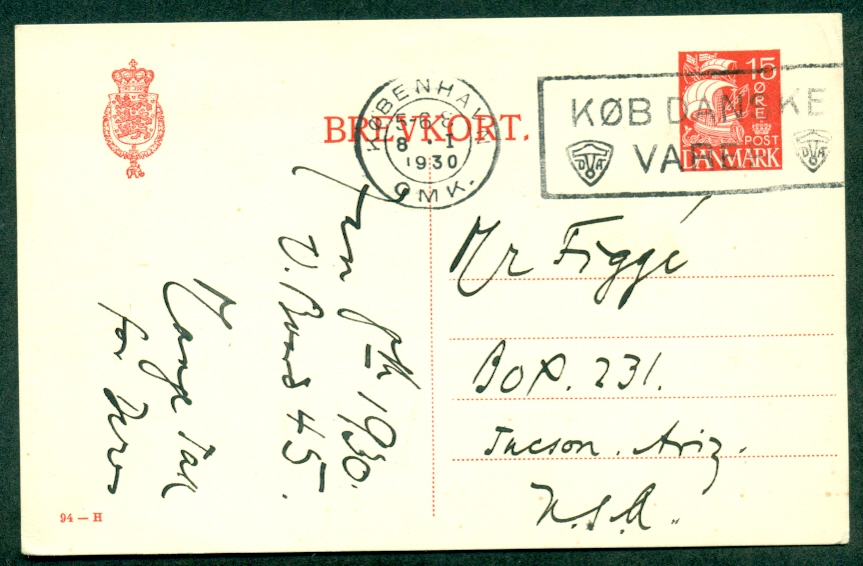 BREVKORT.
KØBENHAVN
5-6 E
8 . I
1930
OMK.
KØB DANSKE
VARE
15
ØRE
POST
DANMARK
Mr Figgé
Box. 231.
Tucson. Ariz.
U.S.A.
Jan 8th 1930.
45.
Mange Tak
for
94 — H